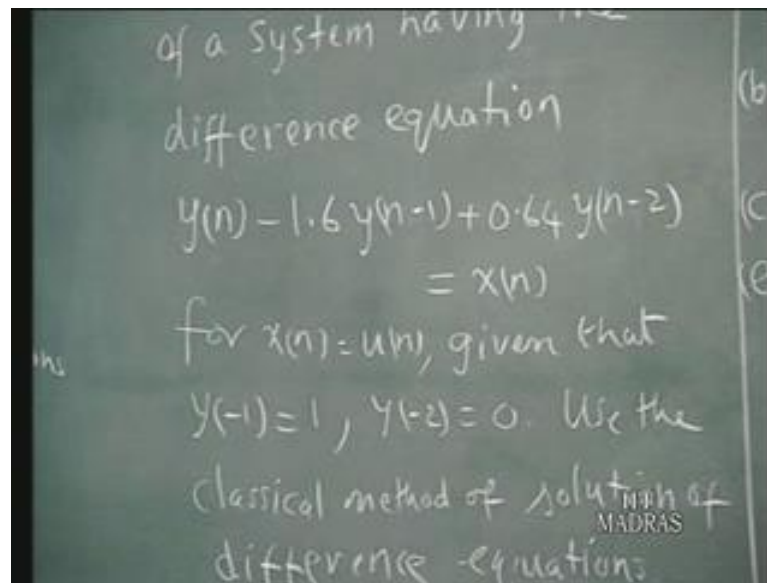 of a system having the
difference equation
y(n) - 1.6 y(n-1) + 0.64 y(n-2)
= x(n)
for x(n) = u(n), given that
y(-1) = 1, y(-2) = 0. Use the
classical method of solution of
difference equations
(b
(c
(e
ns
MADRAS